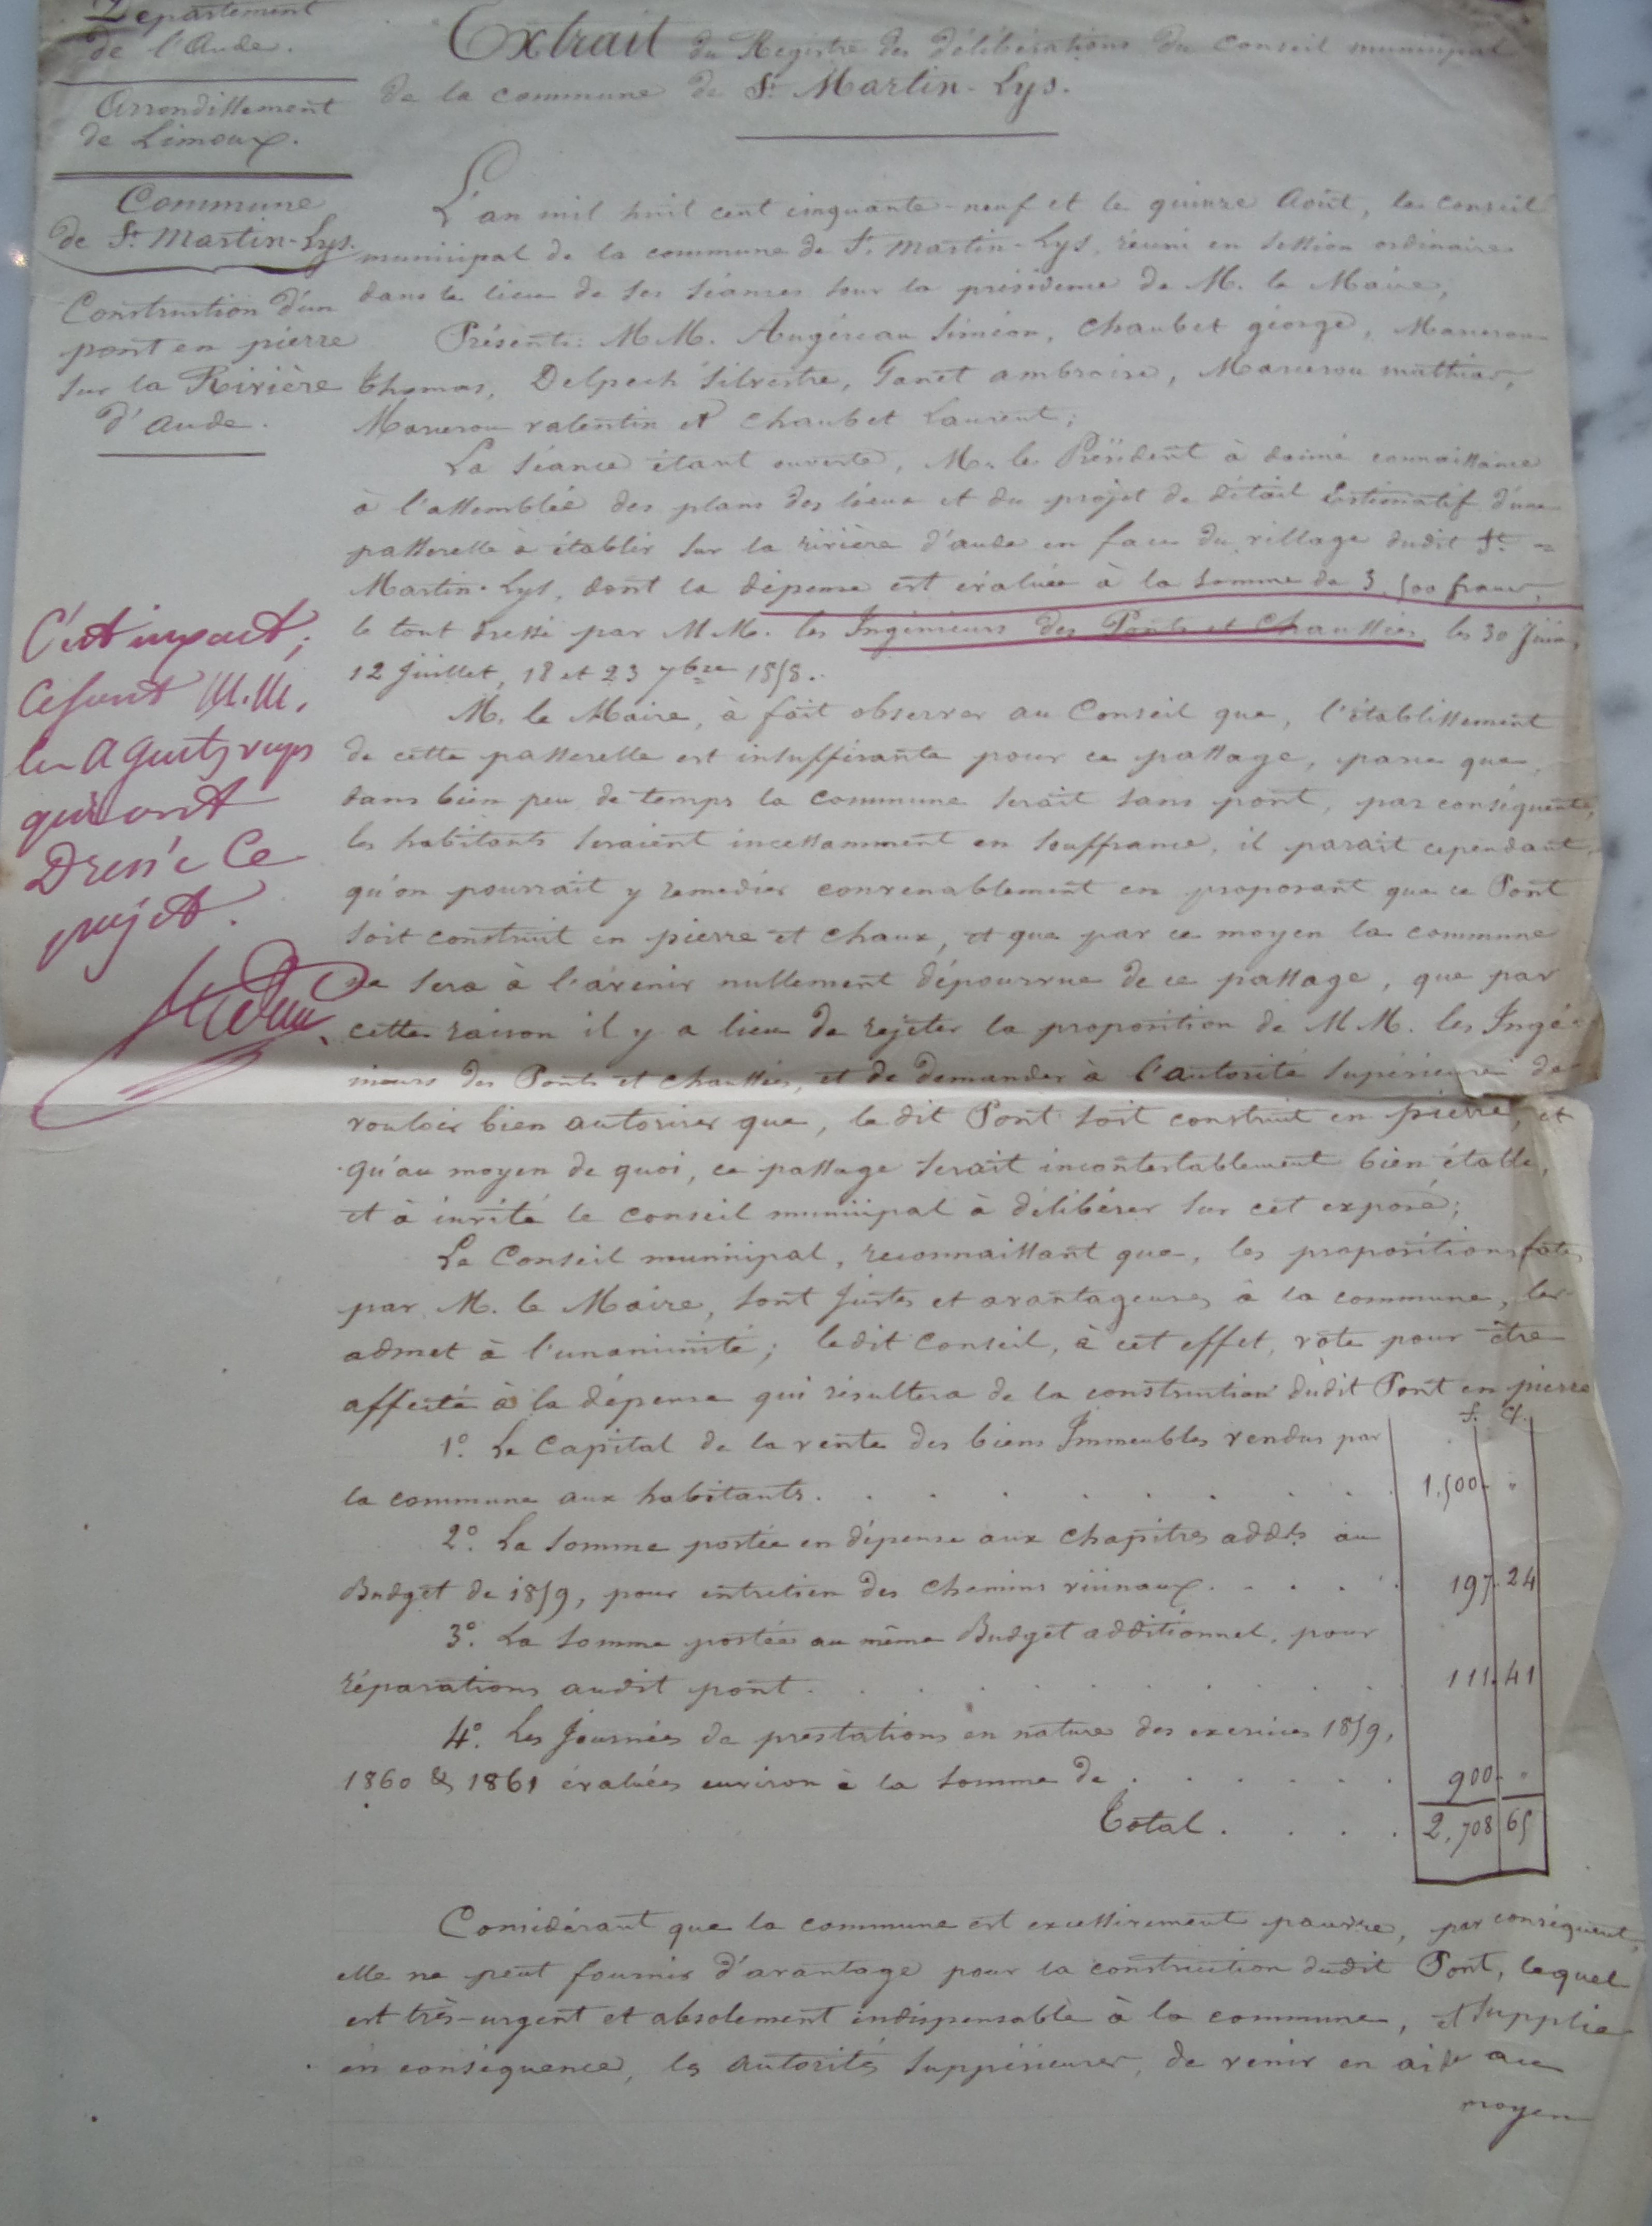 Département
de l'Aude.
Arrondissement
de Limoux.
Commune
de St. Martin-Lys.
Construction d'un
pont en pierre
sur la Rivière
d'Aude.
C'est inexact;
ce sont M.M.
les Agents voyers
qui ont
Dressé ce
projet.
Extrait du Registre des délibérations du Conseil municipal
de la commune de St. Martin-Lys.
L'an mil huit cent cinquante-neuf et le quinze Août, le Conseil
municipal de la commune de St. Martin-Lys, réuni en session ordinaire
dans le lieu de ses séances sous la présidence de M. le Maire;
Présents: M.M. Augéreau Siméon, Chaubet géorge, Marcerou
thomas, Delpech Silvestre, Ganet ambroise, Marcerou mathias,
Marcerou valentin et Chaubet Laurent;
La Séance étant ouverte, M. le Président à donné connaissance
à l'assemblée des plans des lieux et du projet de détail Estimatif d'une
passerelle à établir sur la rivière d'aude en face du village dudit St =
Martin-Lys, dont la dépense est évaluée à la somme de 3.500 francs,
le tout dressé par MM. les Ingénieurs des Ponts et Chaussées, les 30 Juin,
12 Juillet, 18 et 23 7bre 1858.
M. le Maire, à fait observer au Conseil que, l'établissement
de cette passerelle est insuffisante pour ce passage, parce que,
dans bien peu de temps la commune serait sans pont, par conséquent,
les habitants seraient incessamment en souffrance, il parait cependant,
qu'on pourrait y remedier convenablement en proposant que ce Pont
soit construit en pierre et chaux, et que par ce moyen la commune
ne sera à l'avenir nullement dépourvue de ce passage, que par
cette raison il y a lieu de rejeter la proposition de MM. les Ingé-
nieurs des Ponts et chaussées, et de demander à l'autorité supérieure de
vouloir bien autoriser que, le dit Pont soit construit en pierre, et
qu'au moyen de quoi, ce passage serait incontestablement bien établi,
et à invité le conseil municipal à délibérer sur cet exposé;
Le Conseil municipal, reconnaissant que, les propositions faites
par M. le Maire, sont justes et avantageuses à la commune, les
admet à l'unanimité; ledit Conseil, à cet effet, vote pour être
affecté à la dépense qui résultera de la construction dudit Pont en pierre
f. c.
1.° Le Capital de la vente des biens Immeubles vendus par
la commune aux habitants. . . . . . . . 1,500 "
2.° La Somme portée en dépense aux chapitres addls au
Budget de 1859, pour entretien des chemins vicinaux. . . . . 197. 24
3.° La Somme portée au même Budget additionnel, pour
réparations audit pont. . . . . . . . 111. 41
4.° Les Journées de prestations en nature des exercices 1859,
1860 & 1861 évaluées environ à la somme de . . . . . . 900. "
Total . . . . 2,708 65
Considérant que la commune est excessivement pauvre, par conséquent,
elle ne peut fournir d'avantage pour la construction dudit Pont, lequel
est très-urgent et absolement indispensable à la commune, et supplie
en conséquence, les autorités suppérieures, de venir en aide au
moyen